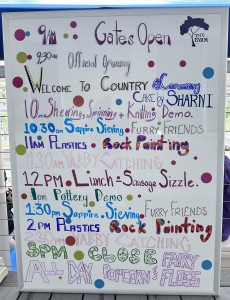 9AM Gates Open
THE FARM
9:30am Official Opening
WELCOME TO COUNTRY & Ceremony
CAKE BY SHARNI
10am Shearing, Spinning + Knitting Demo.
10.30am Sapphire Sieving FURRY FRIENDS
11AM PLASTICS Rock Painting
11.30am YABBY CATCHING
12PM Lunch - Sausage Sizzle.
1pm Pottery Demo
1:30pm Sapphire Sieving FURRY FRIENDS
2PM PLASTICS Rock Painting
YABBY CATCHING
3PM CLOSE
ALL DAY POPCORN & FAIRY FLOSS